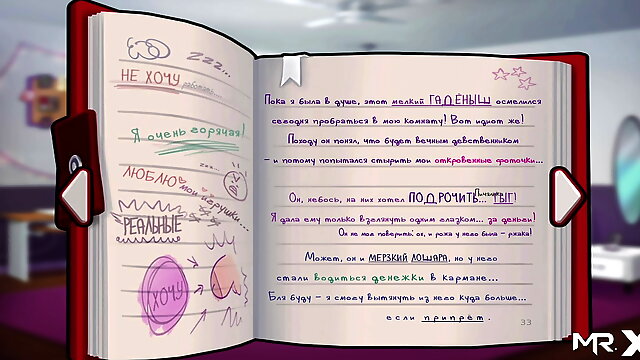 zzz...
НЕ ХОЧУ
работать...
Я очень горячая!
zzz...
ЛЮБЛЮ
мои игрушки...
РЕАЛЬНЫЕ
ХОЧУ
Пока я была в душе, этот мелкий ГАДЁНЫШ осмелился
сегодня пробраться в мою комнату! Вот идиот же!
Походу он понял, что будет вечным девственником
– и потому попытался стырить мои откровенные фоточки...
Он, небось, на них хотел ПОДРОЧИТЬ... ТЫГ!
Я дала ему только взглянуть одним глазком... за деньги!
Он не мог поверить! ох, и рожа у него была – ржака!
Может, он и МЕРЗКИЙ ЛОШАРА, но у него
стали водиться денежки в кармане...
Бля буду – я смогу вытянуть из него куда больше...
если припрёт.
33
MR. X